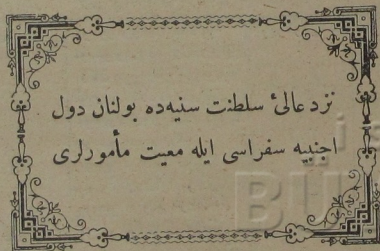 نزد عالیٔ سلطنت سنیه‌ده بولنان دول
اجنبیه سفراسی ایله معیت مأمورلری